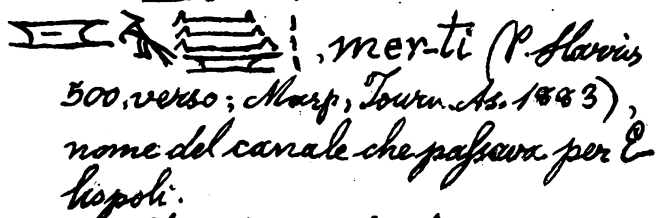 , mer-ti (P. Harris
500, verso; Masp, Journ. As. 1883),
nome del canale che passava per E
liopoli.